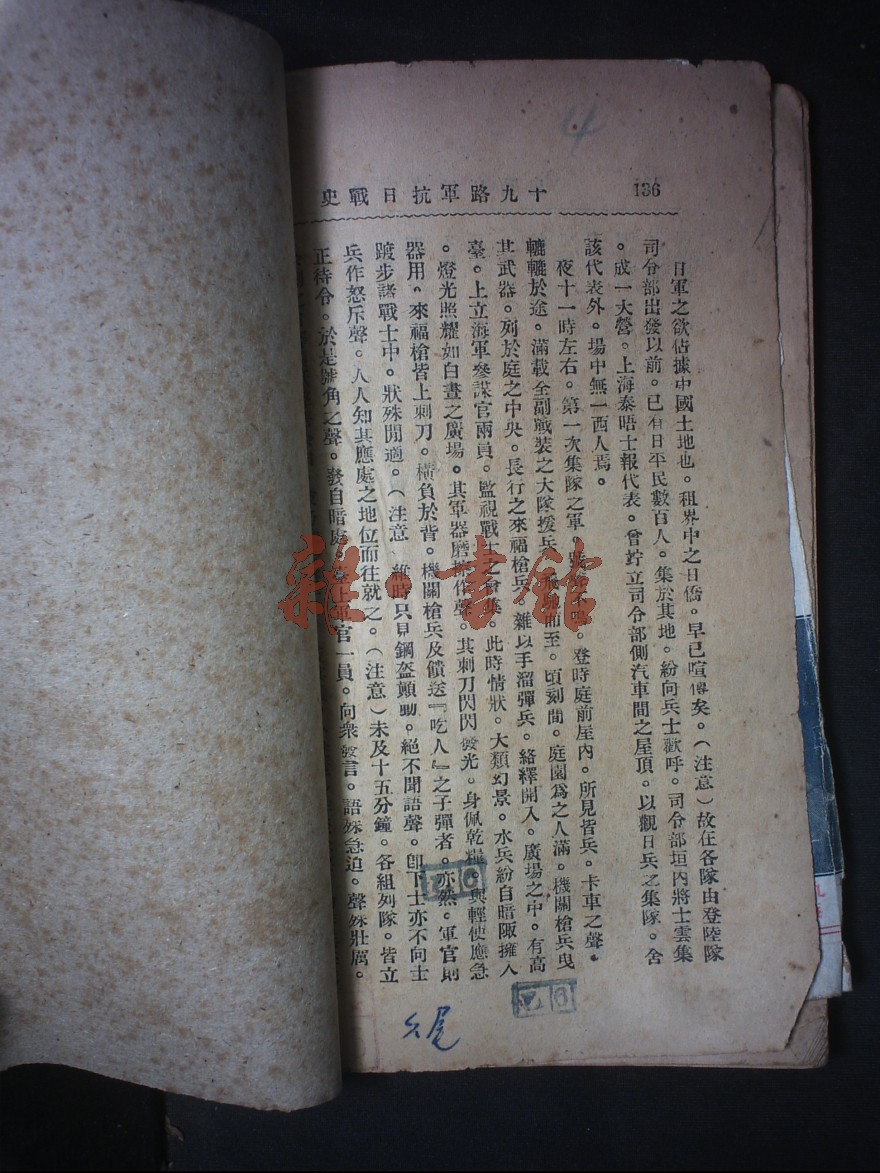 4
136
十九路軍抗日戰史
日軍之欲佔據中國土地也。租界中之日僑。早已喧傳矣。(注意)故在各隊由登陸隊
司令部出發以前。已有日平民數百人。集於其地。紛向兵士歡呼。司令部垣内將士雲集
。成一大營。上海泰晤士報代表。曾竚立司令部側汽車間之屋頂。以觀日兵之集隊。舍
該代表外。場中無一西人焉。
夜十一時左右。第一次集隊之軍 不 。登時庭前屋內。所見皆兵。卡車之聲。
轆轆於途。滿載全副戰裝之大隊援兵 馳而至。頃刻間。庭園爲之人滿。機關槍兵曳
其武器。列於庭之中央。長行之來福槍兵。雜以手溜彈兵。絡繹開入。廣場之中。有高
臺。上立海軍參謀官兩員。監視戰士之會集。此時情狀。大類幻景。水兵紛自暗陬擁入
。燈光照耀如白晝之廣場。其軍器磨擦作聲。其刺刀閃閃發光。身佩乾糧。與輕便應急
器用。來福槍皆上刺刀。橫負於背。機關槍兵及饋送『吃人』之子彈者。亦然。軍官則
踱步諸戰士中。狀殊閒適。(注意 維時只見鋼盔顫動。絕不聞語聲。卽下士亦不向士
兵作怒斥聲。人人知其應處之地位而往就之。(注意)未及十五分鐘。各組列隊。皆立
正待令。於是號角之聲。發自暗處。臺上軍官一員。向衆發言。語殊急迫。聲殊壯厲。
雜·書館
6
6